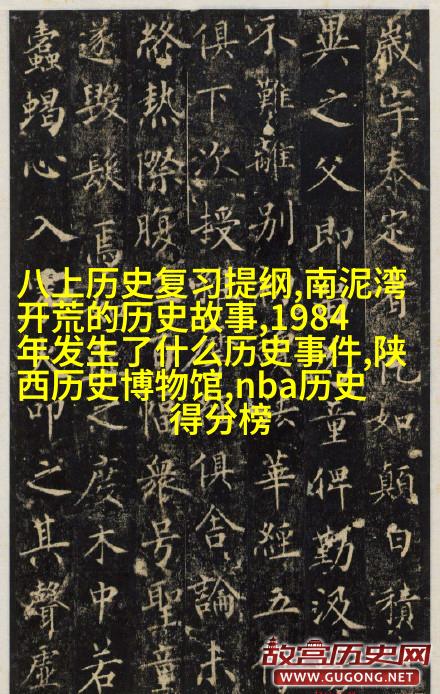 八上历史复习提纲,南泥湾
开荒的历史故事,1984
年发生了什么历史事件,陕
西历史博物馆,nba历史
得分榜
歲字泰定如顛白積
異之父即童俾勤汲
不難離別華經五
俱下次授俱舍論未
終熱際腹衆号聖童
遂毀髮焉之度木中若
蠹蝎心入命之其聲虛
故宫历史网
WWW.GUGONG.NET